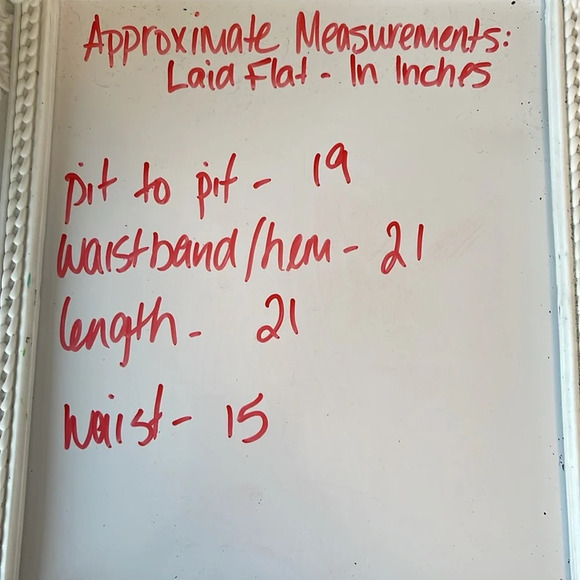 Approximate Measurements:
Laid Flat - In Inches
pit to pit - 19
waistband/hem - 21
length - 21
waist - 15